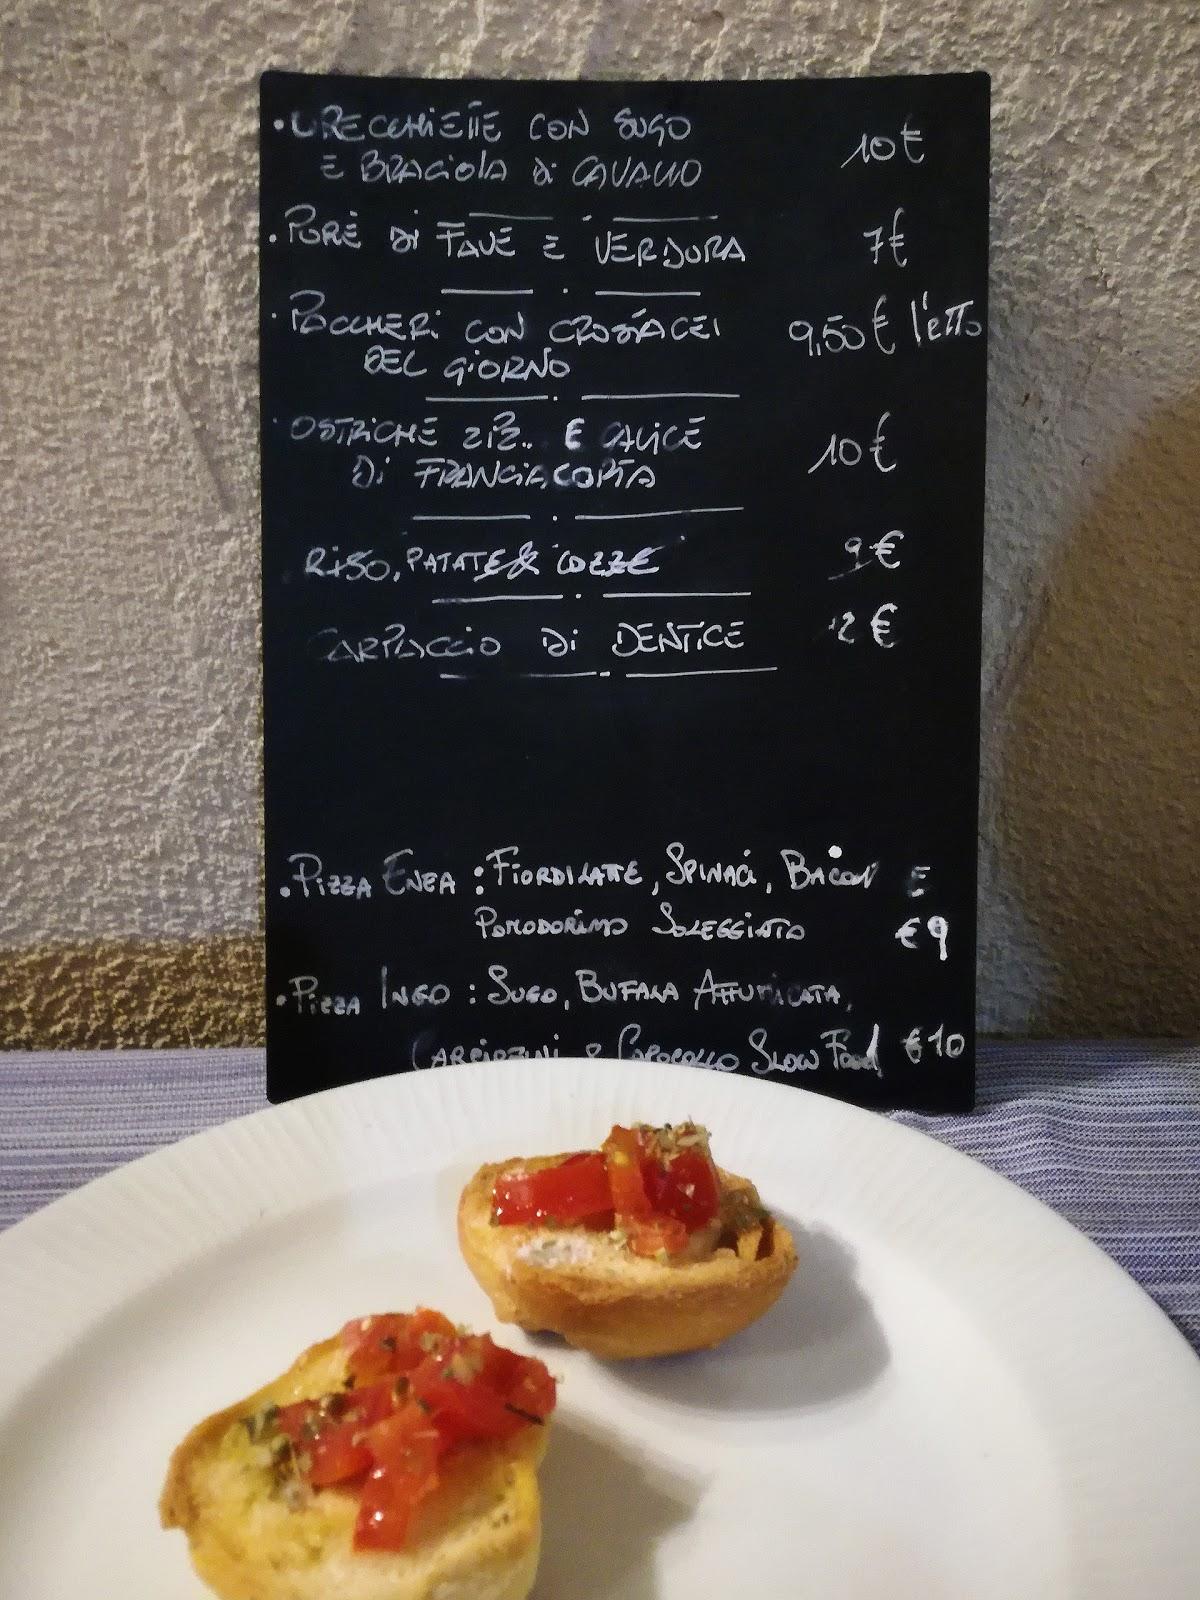 • ORECCHIETTE CON SUGO 10€
E BRACIOLA DI CAVALLO
• PURÈ DI FAVE E VERDURA 7€
• PACCHERI CON CROSTACEI 9,50€ l'ETTO
DEL GIORNO
• OSTRICHE E CALICE 10€
DI FRANCIACORTA
RISO, PATATE & COZZE 9€
CARPACCIO DI DENTICE 12€
• PIZZA ENEA : FIORDILATTE, SPINACI, BACON E
POMODORINO SOLEGGIATO €9
• PIZZA INGO : SUGO, BUFALA AFFUMICATA,
CARCIOFINI & CAPOCOLLO SLOW FOOD €10